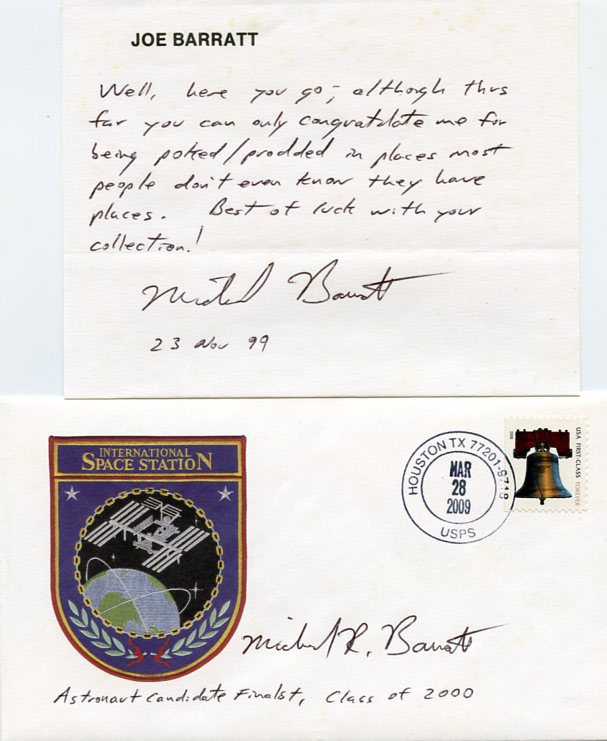 JOE BARRATT
Well, here you go; although thus
far you can only congratulate me for
being poked/prodded in places most
people don't even know they have
places. Best of luck with your
collection!
Michael Barratt
23 Nov 99
INTERNATIONAL
SPACE STATION
HOUSTON TX 77201-9718
MAR
28
2009
USPS
USA FIRST-CLASS FOREVER
Michael R. Barratt
Astronaut Candidate Finalist, Class of 2000